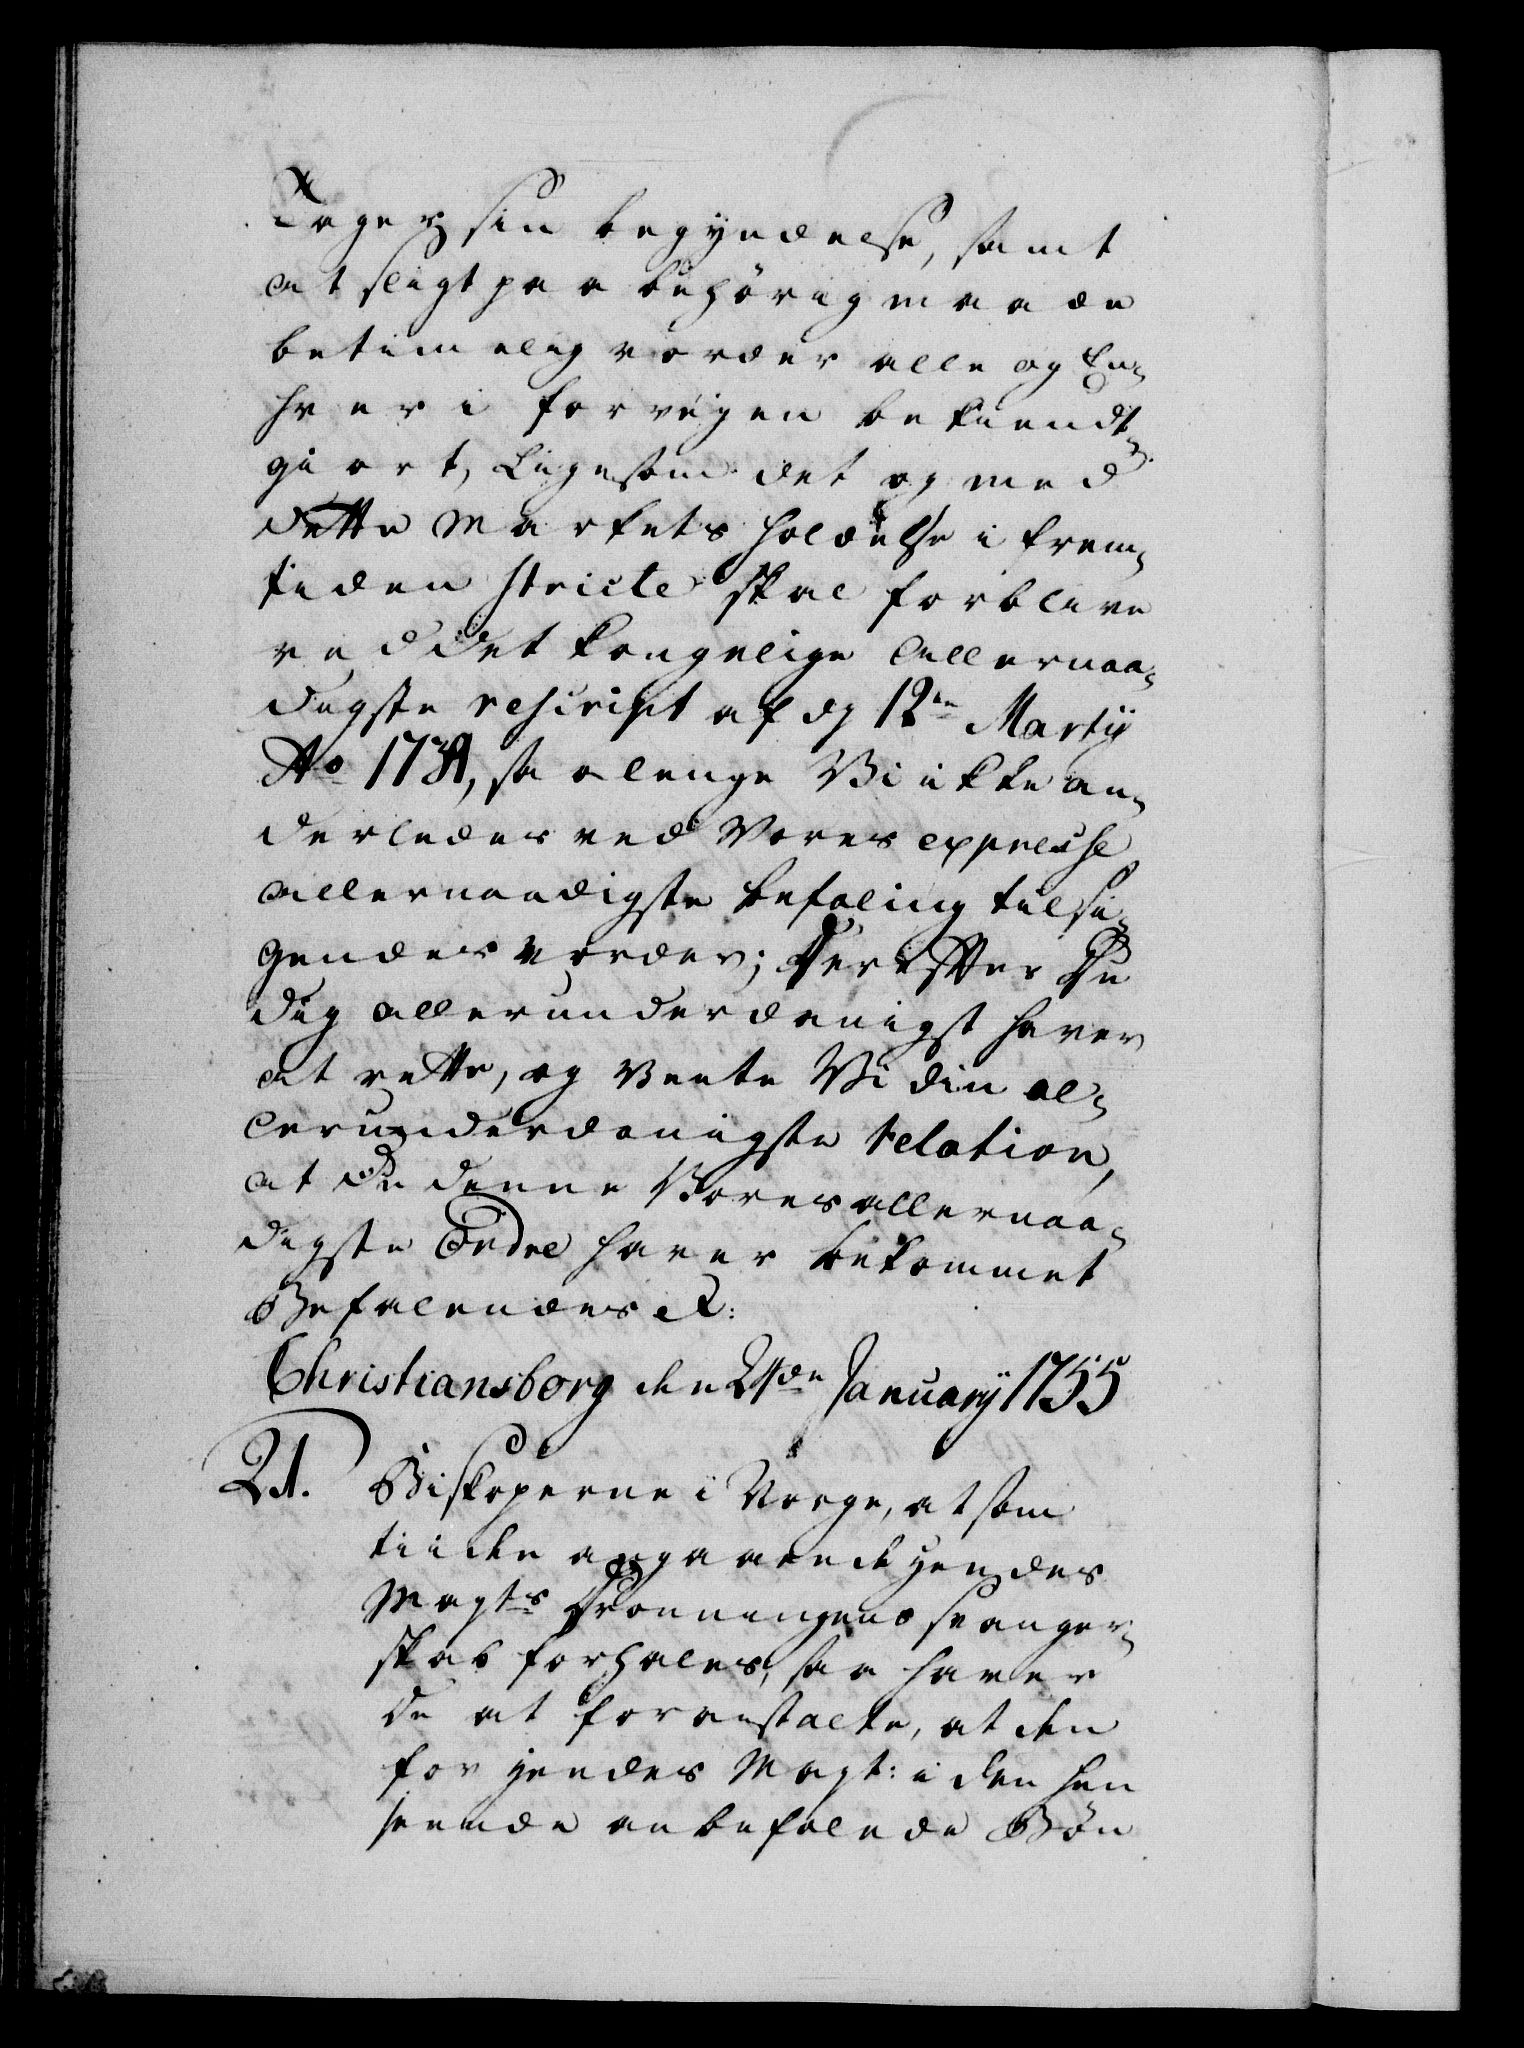 Tager sin begyndelse, samt
at sligt paa behörig maade
betimelig vorder alle og En¬
hver i forvejen bekiendt¬
giort, Ligesom det og med
dette Markets holdelse i frem¬
tiden stricte skal forblive
ved det kongelige Allernaa¬
digste rescript af dj 12te Martij
Ao 1731, saalenge Vi ikke an¬
derledes ved Vores expresse
allernaadigste befaling tilsi¬
gendes vorder; Derefter Du
dig allerunderdanigst haver
at rette, og Vente Vi din al¬
lerunderdanigste relation,
at du denne Vores allernaa¬
digste Ordre haver bekommet
Befalendes etc:
Christiansborg den 24de Januarij 1755
21. Biskoperne i Norge, at som
tiiden angaaende Hendes
Mayts Dronningens svanger¬
skab forhales, saa haver
de at foranstalte, at den
for Hendes Mayt: i den hen
seende anbefalede Bön